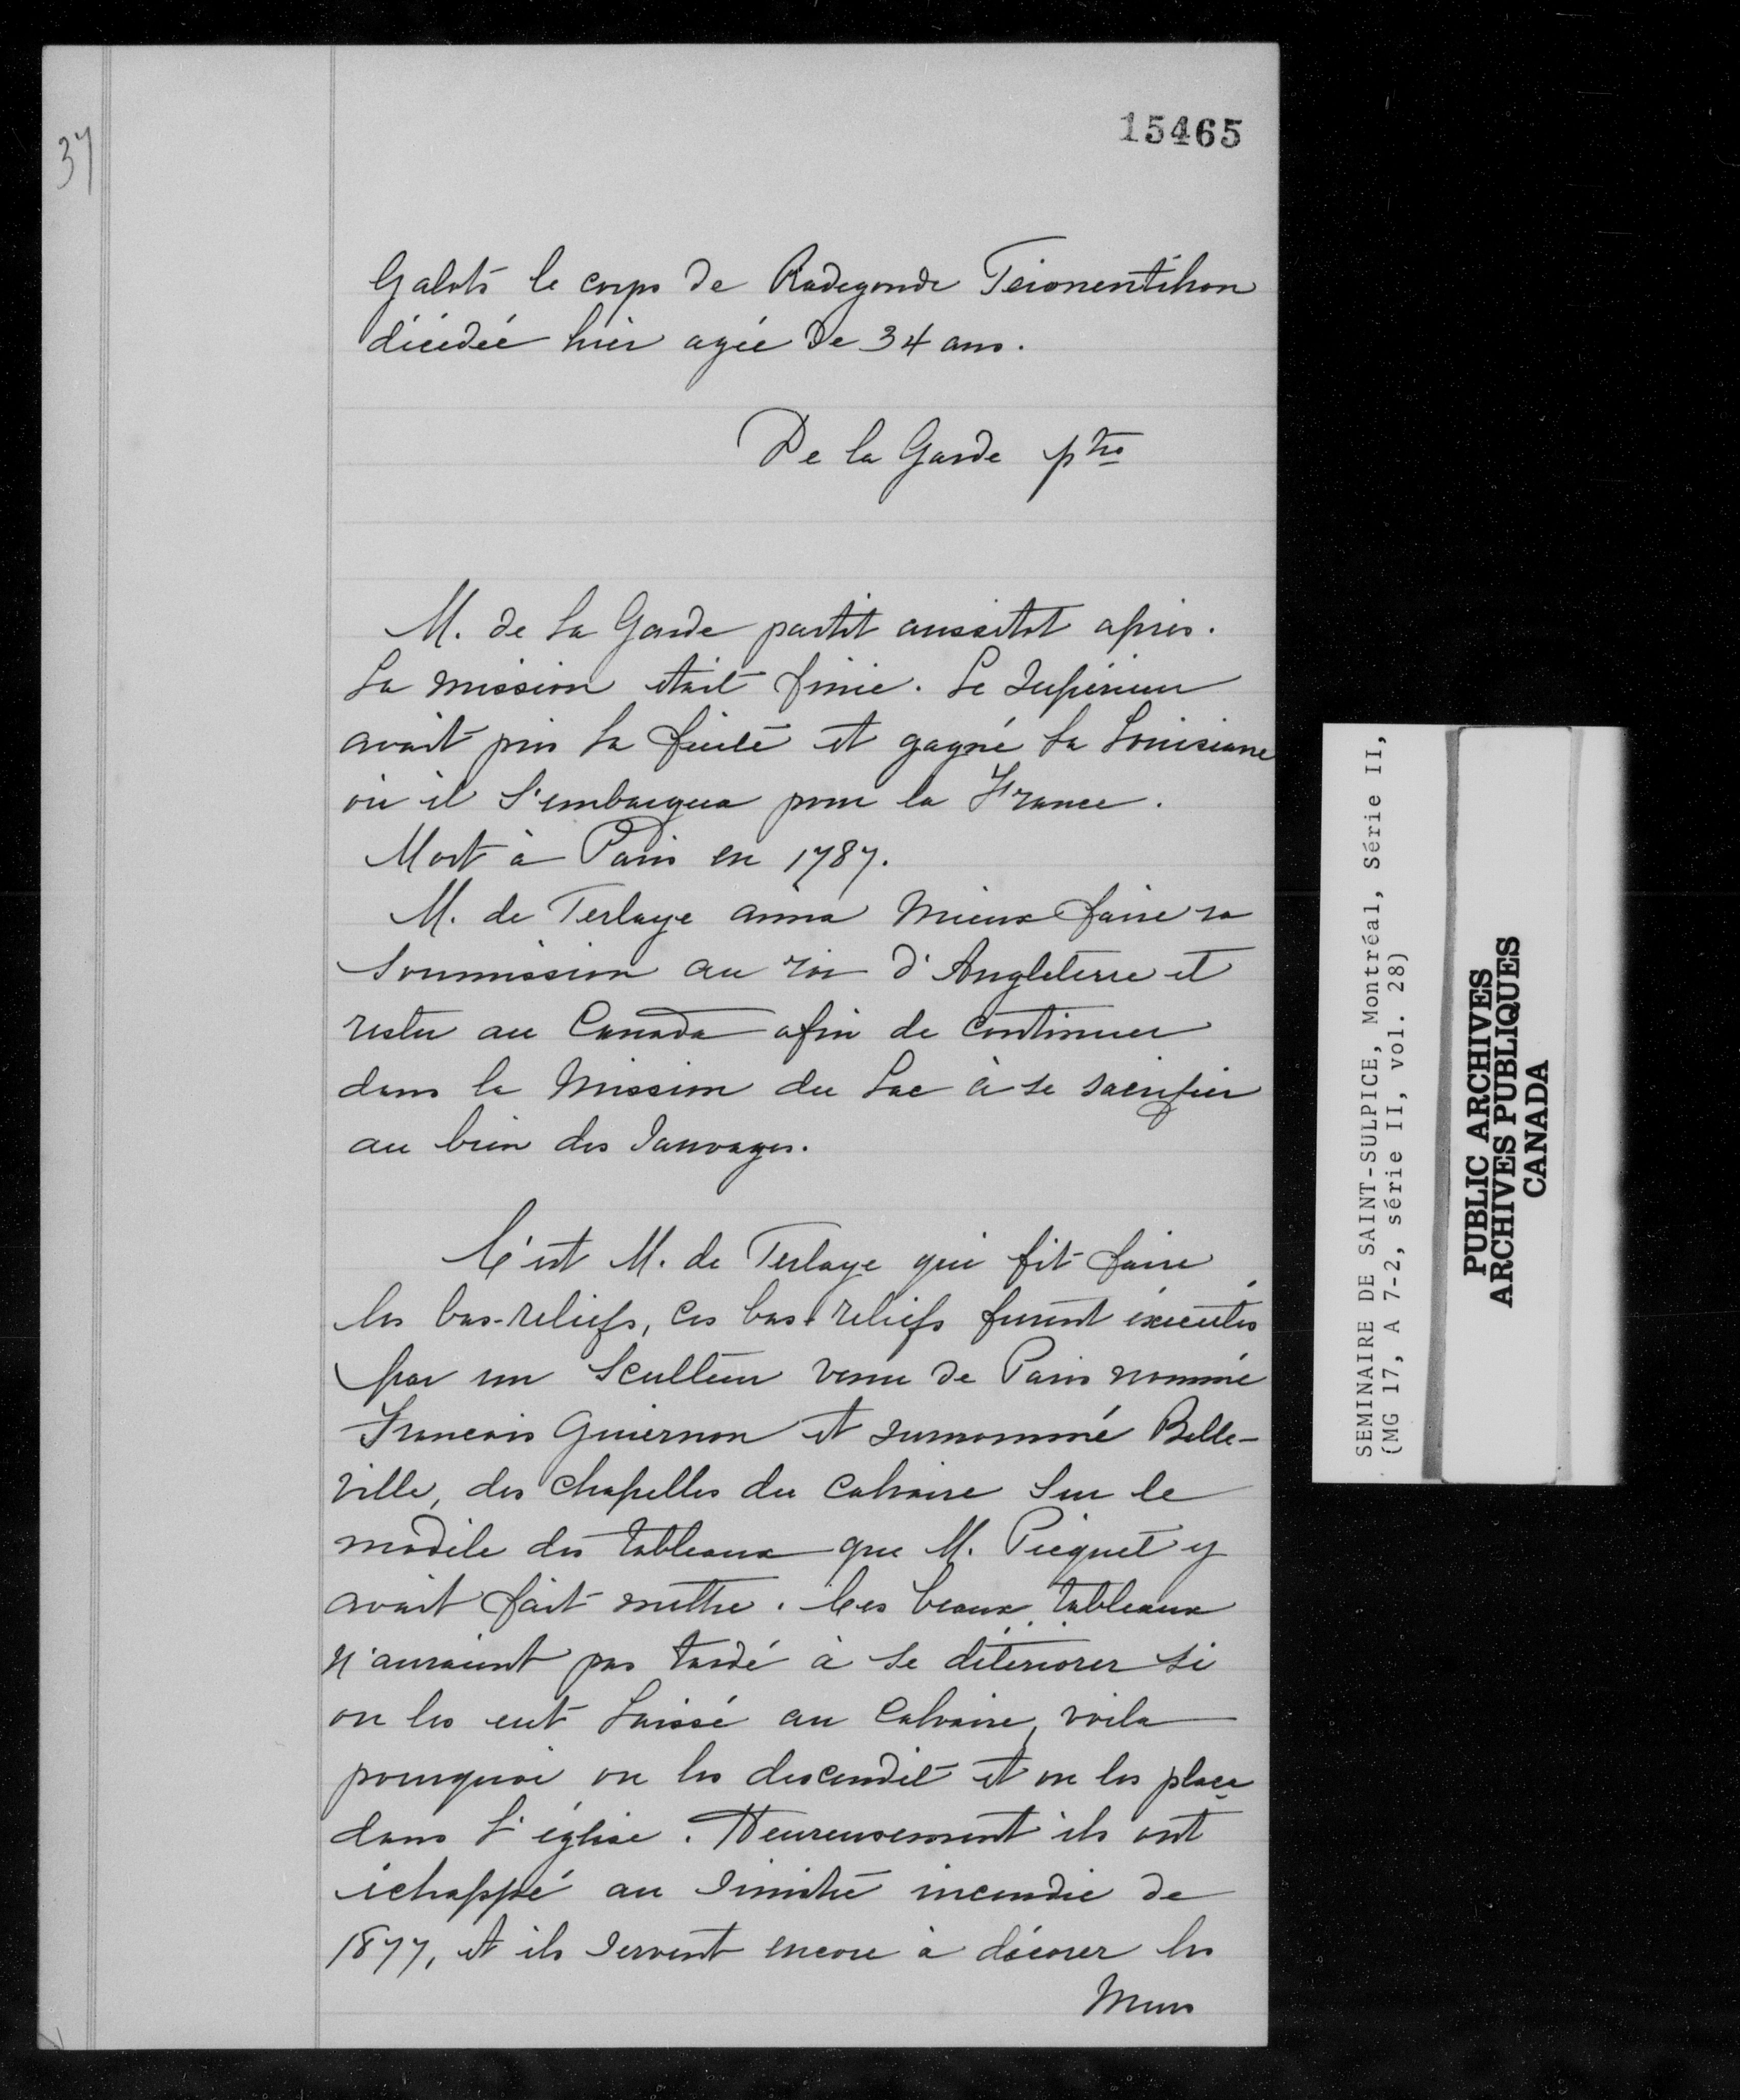 37
15465
Galots le corps de Radegonde Teionentihon
décédée hier agée de 34 ans.
De la Garde ptre
M. de la Garde partit aussitot après.
La mission était finie. Le Supérieur
avait pris la fuite et gagné la Louisiane
où il s'embarqua pour la France.
Mort à Paris en 1787.
M. de Terlaye aima mieux faire sa
soumission au roi d'Angleterre et
rester au Canada afin de continuer
dans la mission du Lac à se sacrifier
au bien des Sauvages.
C'est M. de Terlaye qui fit faire
les bas-reliefs, ces bas-reliefs furent éxécutés
par un Sculteur venu de Paris nommé
Francois Guiernon et surnommé Belle-
ville, des chapelles du Calvaire sur le
modèle des tableaux que M. Picquet y
avait fait mettre. Ces beaux tableaux
n'auraient pas tardé à se déteriorer si
on les eut laissé au Calvaire, voila
pourquoi on les descendit et on les plaça
dans l'église. Heureusement ils ont
échappé au sinistre incendie de
1877, et ils servent encore à décorer les
Murs
SEMINAIRE DE SAINT-SULPICE, Montréal, Série II,
(MG 17, A 7-2, série II, vol. 28)
PUBLIC ARCHIVES
ARCHIVES PUBLIQUES
CANADA